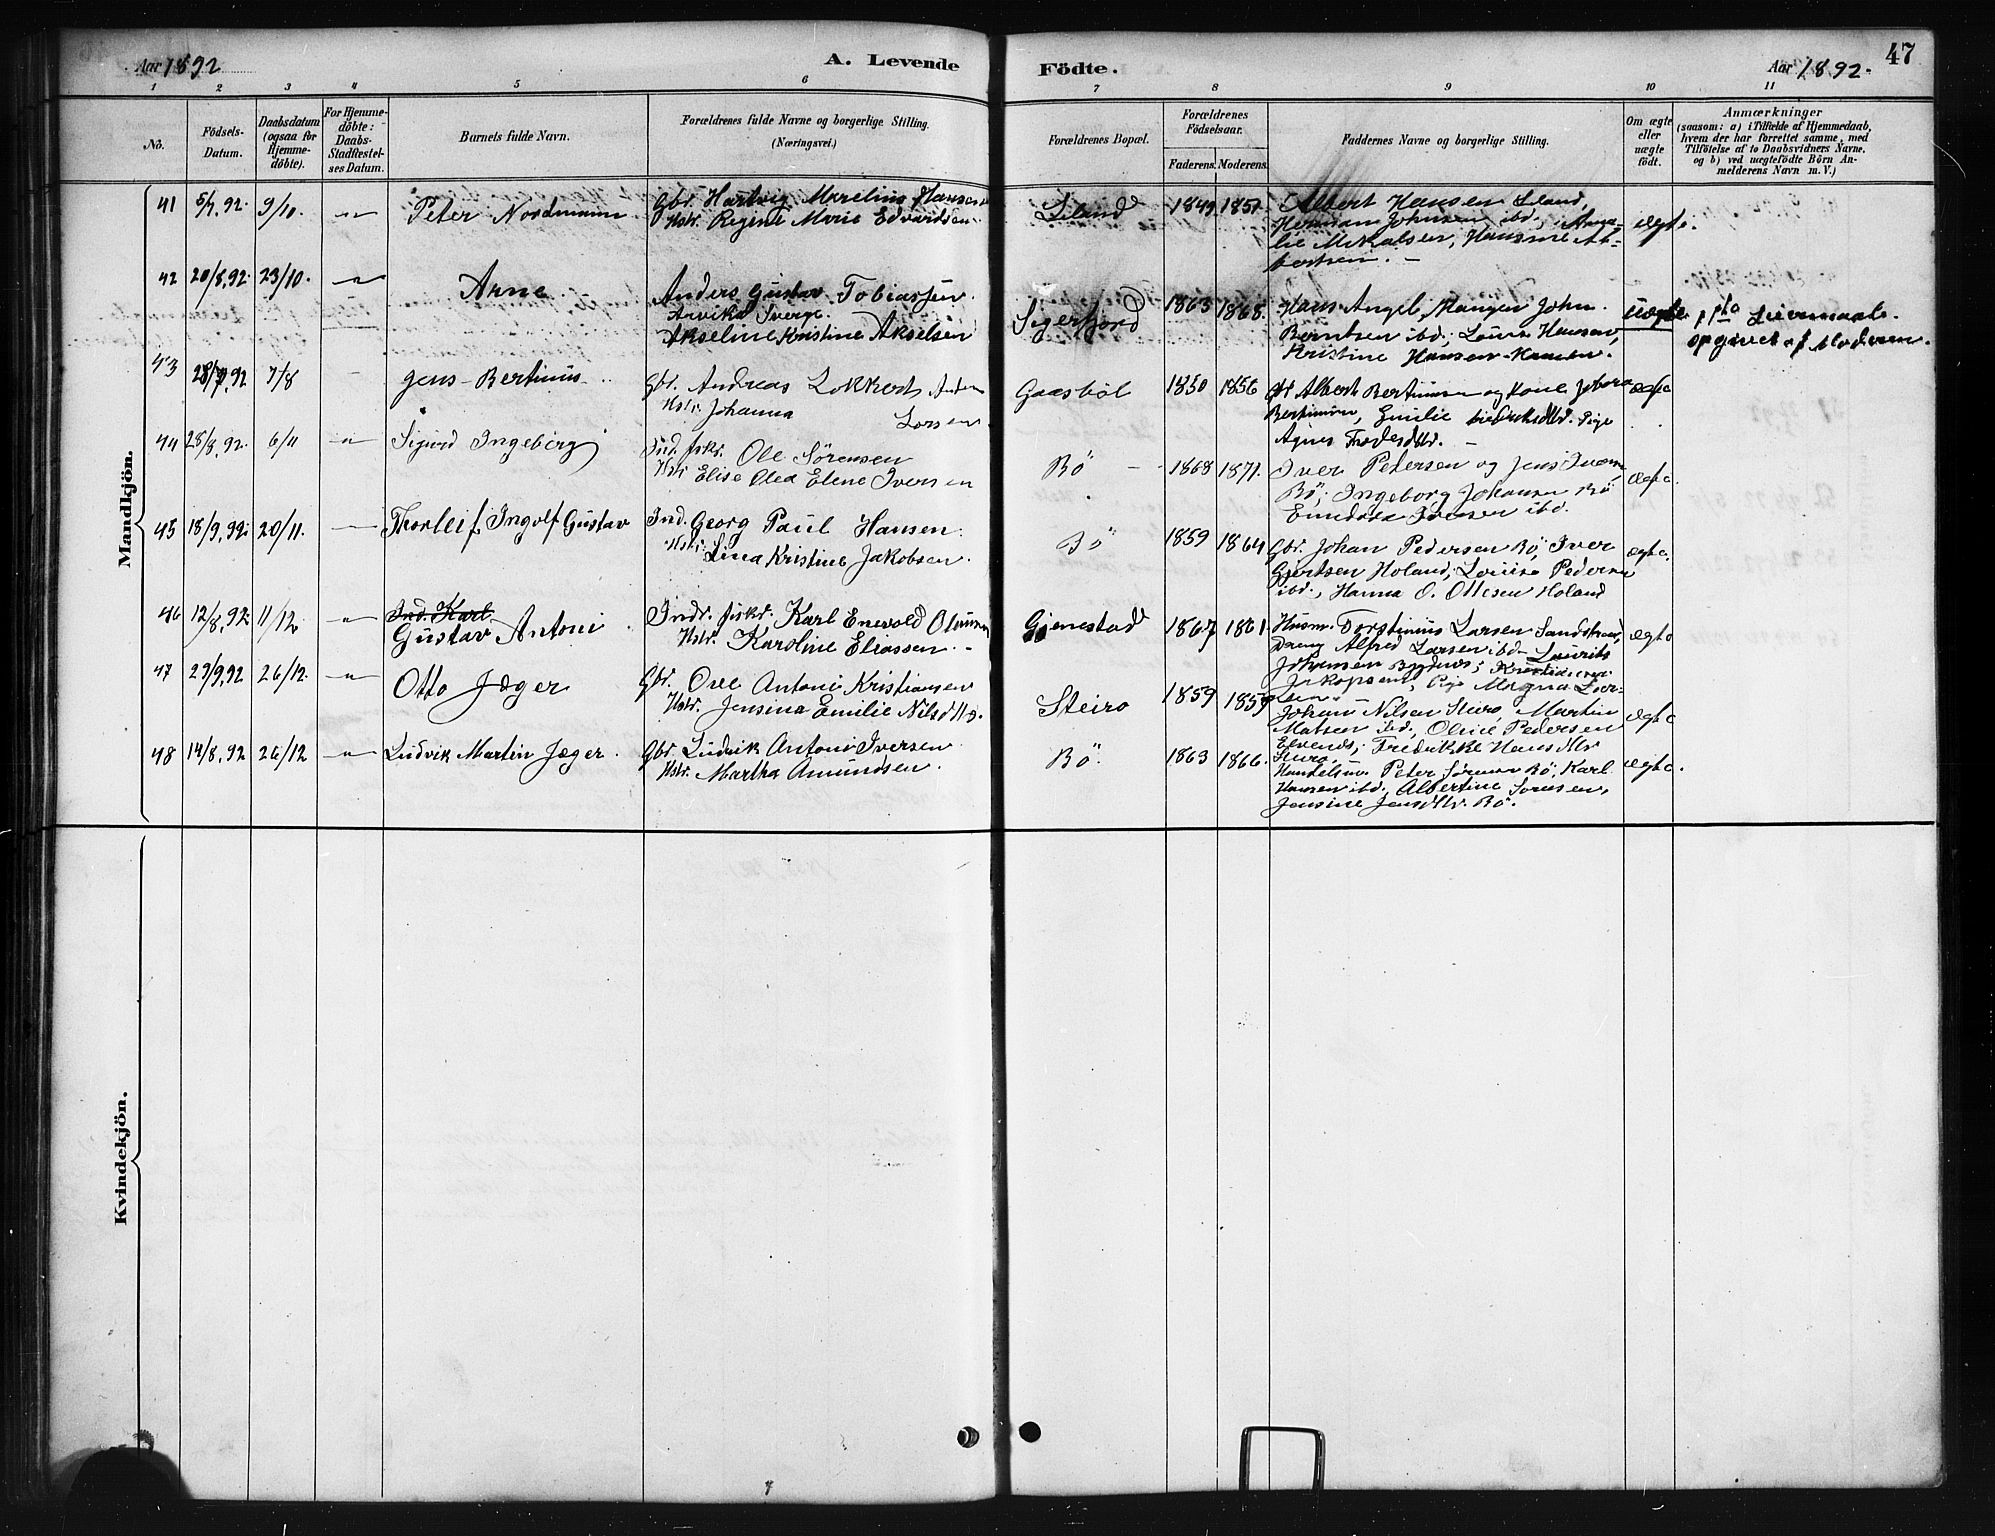 Aar 1892
A. Levende
Födte.
Aar 1892.
47
1 2 3 4 5 6 7 8 9 10 11
No.
Födsels-
Datum.
Daabsdatum
(ogsaa for
Hjemme-
döbte).
For Hjemme-
döbte:
Daabs-
Stadfestel-
ses Datum.
Barnets fulde Navn.
Forældrenes fulde Navne og borgerlige Stilling.
(Næringsvei.)
Forældrenes Bopæl.
Forældrenes
Födselsaar.
Faderens. Moderens.
Faddernes Navne og borgerlige Stilling.
Om ægte
eller
uægte
födt.
Anmærkninger
(saasom: a) i Tilfælde af Hjemmedaab,
hvem der har forrettet samme, med
Tilföielse af to Daabsvidners Navne,
og b) ved uægtefödte Börn An-
melderens Navn m. V.)
Mandkjön.
41 5/7.92. 9/10. Peter Nordmann
Gbr. Hartvig Marelius Hansen
Hstr. Regine Marie Edvardsen.
1849 1851.
Albert Hansen
Herman Johnsen ibd.,
lie Mikalsen, Hansine Al-
bertsen. –
ægte.
42 20/8.92. 23/10. Arne
Anders Gustav Tobiassen.
Arvika Sverge.
Akseline Kristine Akselsen
Sigerfjord
1863 1868.
Hans Angel, John
Berntsen ibd., Lovise Hansen,
Kristine Hansen
uægte
opgivet af Moderen.
43 28/7.92 7/8 Jens Bertinus
Gbr. Andreas Lokkert
Hstr. Johanna Larsen
Gaasböl
1850 1856
Gbr Albert Bertinusen og Kone
Bertinusen, Emilie Pige
Agnes
ægte
44 28/8.92. 6/11 Sigurd Ingeberg
Ind. fskr. Ole Sörensen
Hstr. Elise Olea Elene Iversen
Bö
1868 1871.
Iver Petersen og Jens
Bö, Ingeborg Johansen Bö
Iversen ibd.
ægte.
45 18/9.92. 20/11. Thorleif Ingolf Gustav
Ind. Georg Paul Hansen.
Hstr. Lina Kristine Jakobsen.
Bö
1859 1864
Gbr. Johan Pedersen Bö, Iver
Gjertsen Holand, Lovise Pedersen
ibd., Hanna O. Ottesen Holand
ægte.
46 12/8.92 11/12 Ind. Karl
Gustav Antoni
Indr. fiskr. Karl Enevold
Hstr. Karoline Eliassen. –
Gjenestad
1867 1861.
Husm. Torstinus Larsen
Dreng Alfred Larsen ibd. Laurits
Johansen
Pige Magna
ægte
47 27/9.92 26/12. Otto Jæger
Gbr. Ove Antoni Kristiansen
Hstr. Jensina Emilie Nilsdtr.
Steiro
1859 1859
Johan Nilsen Steiro, Martin
Matsen ibd., Oline Pedersen
Fredrikke Hansdtr
Steiro.
ægte
48 14/8.92 26/12 Ludvik Martin Jæger.
Gbr. Ludvik Antoni Iversen
Hstr. Martha Amundsen.
Bö.
1863 1866.
Handelsm. Peter Sörensen Bö, Karl
Hansen ibd., Albertine Sörensen,
Jensine Jensdtr. Bö.
ægte.
Kvindekjön.